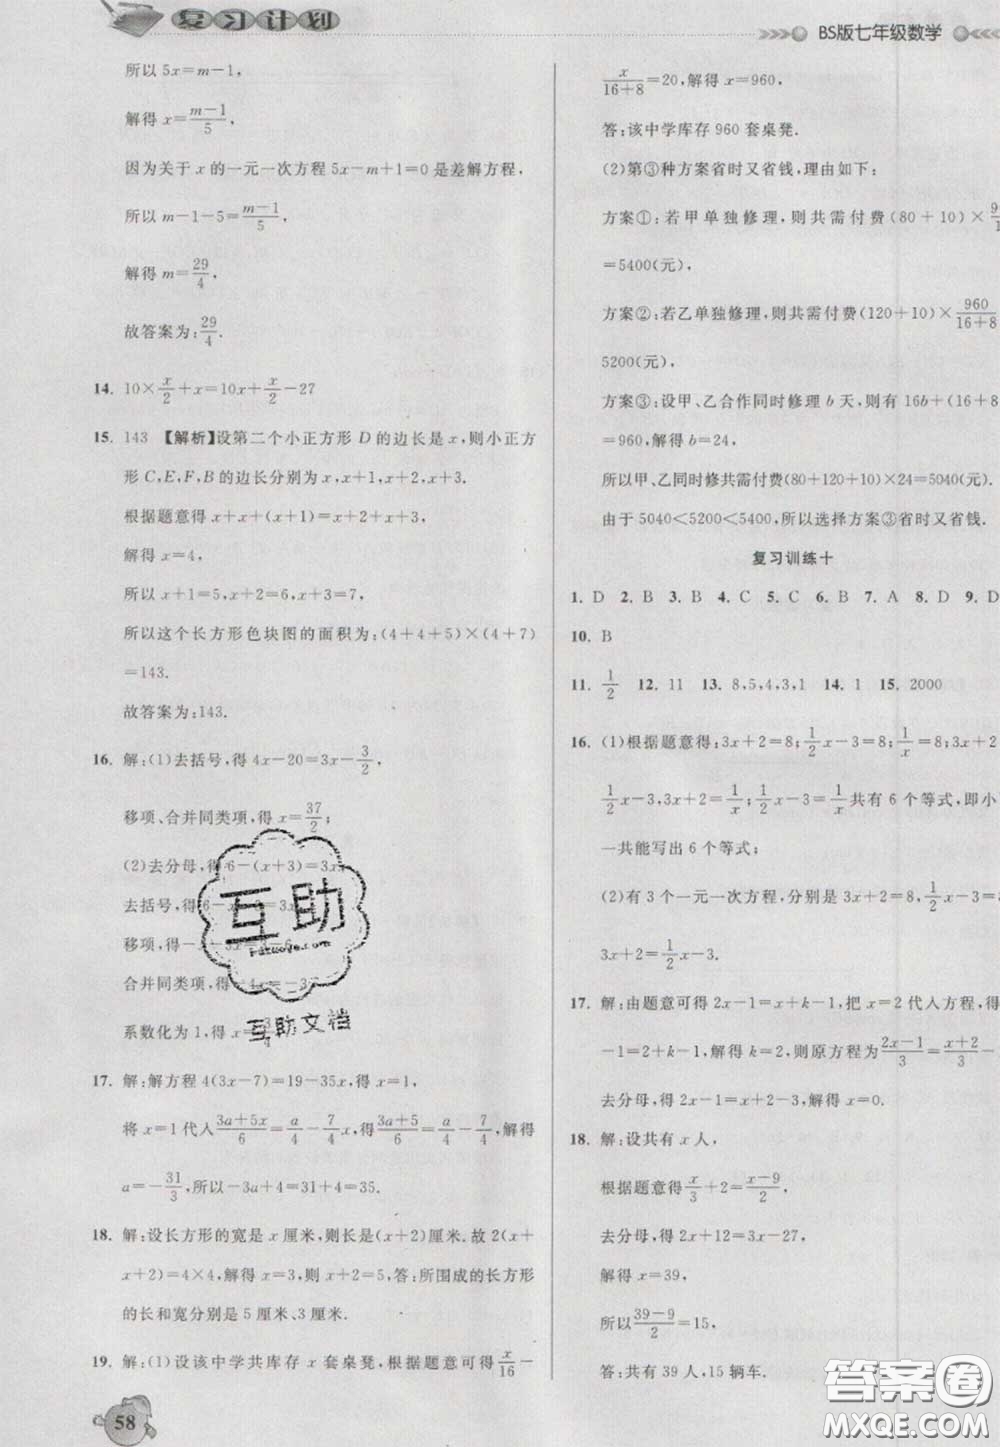 复习计划
BS版七年级数学
所以 5x=m−1,
解得 x=\frac{m−1}{5},
因为关于 x 的一元一次方程 5x−m+1=0 是差解方程,
所以 m−1−5=\frac{m−1}{5},
解得 m=\frac{29}{4},
故答案为:\frac{29}{4}.
14. 10×\frac{x}{2}+x=10x+\frac{x}{2}−27
15. 143 【解析】设第二个小正方形 D 的边长是 x,则小正方
形 C,E,F,B 的边长分别为 x,x+1,x+2,x+3.
根据题意得 x+x+(x+1)=x+2+x+3,
解得 x=4,
所以 x+1=5,x+2=6,x+3=7,
所以这个长方形色块图的面积为:(4+4+5)×(4+7)
=143.
故答案为:143.
16. 解:(1)去括号,得 4x−20=3x−\frac{3}{2},
移项、合并同类项,得 x=\frac{37}{2};
(2)去分母,得 6−(x+3)=3x
去括号,得 6−x−3=3x
移项,得 −x−3
合并同类项,得 −4x
系数化为 1,得 x=
17. 解:解方程 4(3x−7)=19−35x,得 x=1,
将 x=1 代人\frac{3a+5x}{6}=\frac{a}{4}−\frac{7}{4}x,得\frac{3a+5}{6}=\frac{a}{4}−\frac{7}{4},解得
a=−\frac{31}{3},所以−3a+4=31+4=35.
18. 解:设长方形的宽是 x 厘米,则长是(x+2)厘米.故 2(x+
x+2)=4×4,解得 x=3,则 x+2=5,答:所围成的长方形
的长和宽分别是 5 厘米、3 厘米.
19. 解:(1)设该中学共库存 x 套桌凳,根据题意可得\frac{x}{16}−
58
\frac{x}{16+8}=20,解得 x=960,
答:该中学库存 960 套桌凳.
(2)第③种方案省时又省钱,理由如下:
方案①:若甲单独修理,则共需付费(80+10)×
=5400(元),
方案②:若乙单独修理,则共需付费(120+10)×\frac{960}{16+8}
5200(元),
方案③:设甲、乙合作同时修理 b 天,则有 16b+(16+8
=960,解得 b=24,
所以甲、乙同时修共需付费(80+120+10)×24=5040(元).
由于 5040<5200<5400,所以选择方案③省时又省钱.
复习训练十
1. D 2. B 3. B 4. C 5. C 6. B 7. A 8. D 9. D
10. B
11. \frac{1}{2} 12. 11 13. 8,5,4,3,1 14. 1 15. 2000
16. (1)根据题意得:3x+2=8;\frac{1}{2}x−3=8;\frac{1}{x}=8;3x+2
\frac{1}{2}x−3,3x+2=\frac{1}{x};\frac{1}{2}x−3=\frac{1}{x}共有 6 个等式,即小
一共能写出 6 个等式;
(2)有 3 个一元一次方程,分别是 3x+2=8,\frac{1}{2}x−3=8
3x+2=\frac{1}{2}x−3.
17. 解:由题意可得 2x−1=x+k−1,把 x=2 代人方程,得
−1=2+k−1,解得 k=2,则原方程为\frac{2x−1}{3}=\frac{x+2}{3}
去分母,得 2x−1=x+2−3,解得 x=0.
18. 解:设共有 x 人,
根据题意得\frac{x}{3}+2=\frac{x−9}{2},
去分母,得 2x+12=3x−27,
解得 x=39,
所以\frac{39−9}{2}=15,
答:共有 39 人,15 辆车.
互助
互助文档
答案圈
MXQE.COM